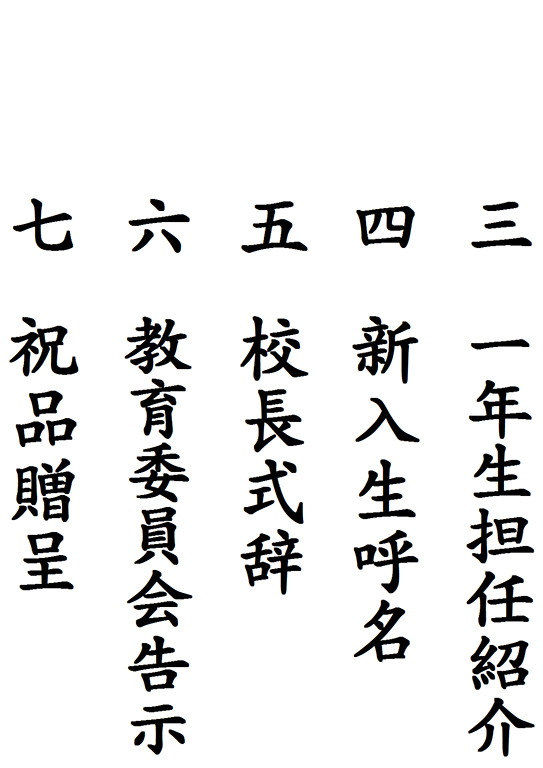 三　一年生担任紹介
四　新入生呼名
五　校長式辞
六　教育委員会告示
七　祝品贈呈